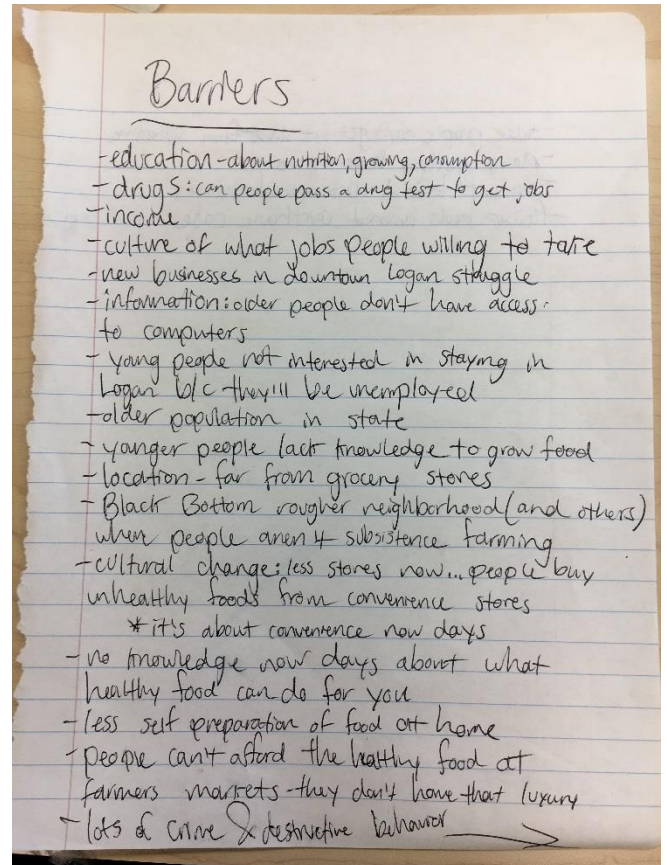 Barriers
- education - about nutrition, growing, consumption
- drugs: can people pass a drug test to get jobs
- income
- culture of what jobs people willing to take
- new businesses in downtown Logan struggle
- information: older people don't have access
to computers
- young people not interested in staying in
Logan b/c they'll be unemployed
- older population in state
- younger people lack knowledge to grow food
- location - far from grocery stores
- Black Bottom rougher neighborhood (and others)
when people aren't subsistence farming
- cultural change: less stores now... people buy
unhealthy foods from convenience stores
* it's about convenience now days
- no knowledge now days about what
healthy food can do for you
- less self preparation of food at home
- people can't afford the healthy food at
farmers markets - they don't have that luxury
- lots of crime & destructive behavior